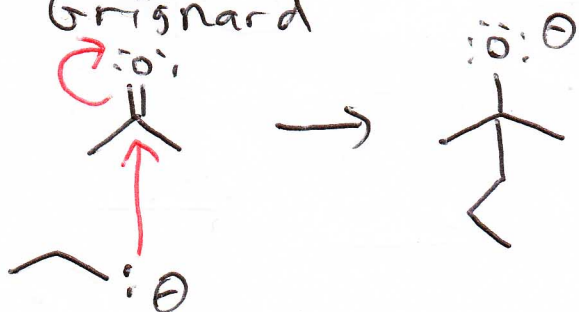 Grignard
:Ö: ⊖
:Ö:
: ⊖